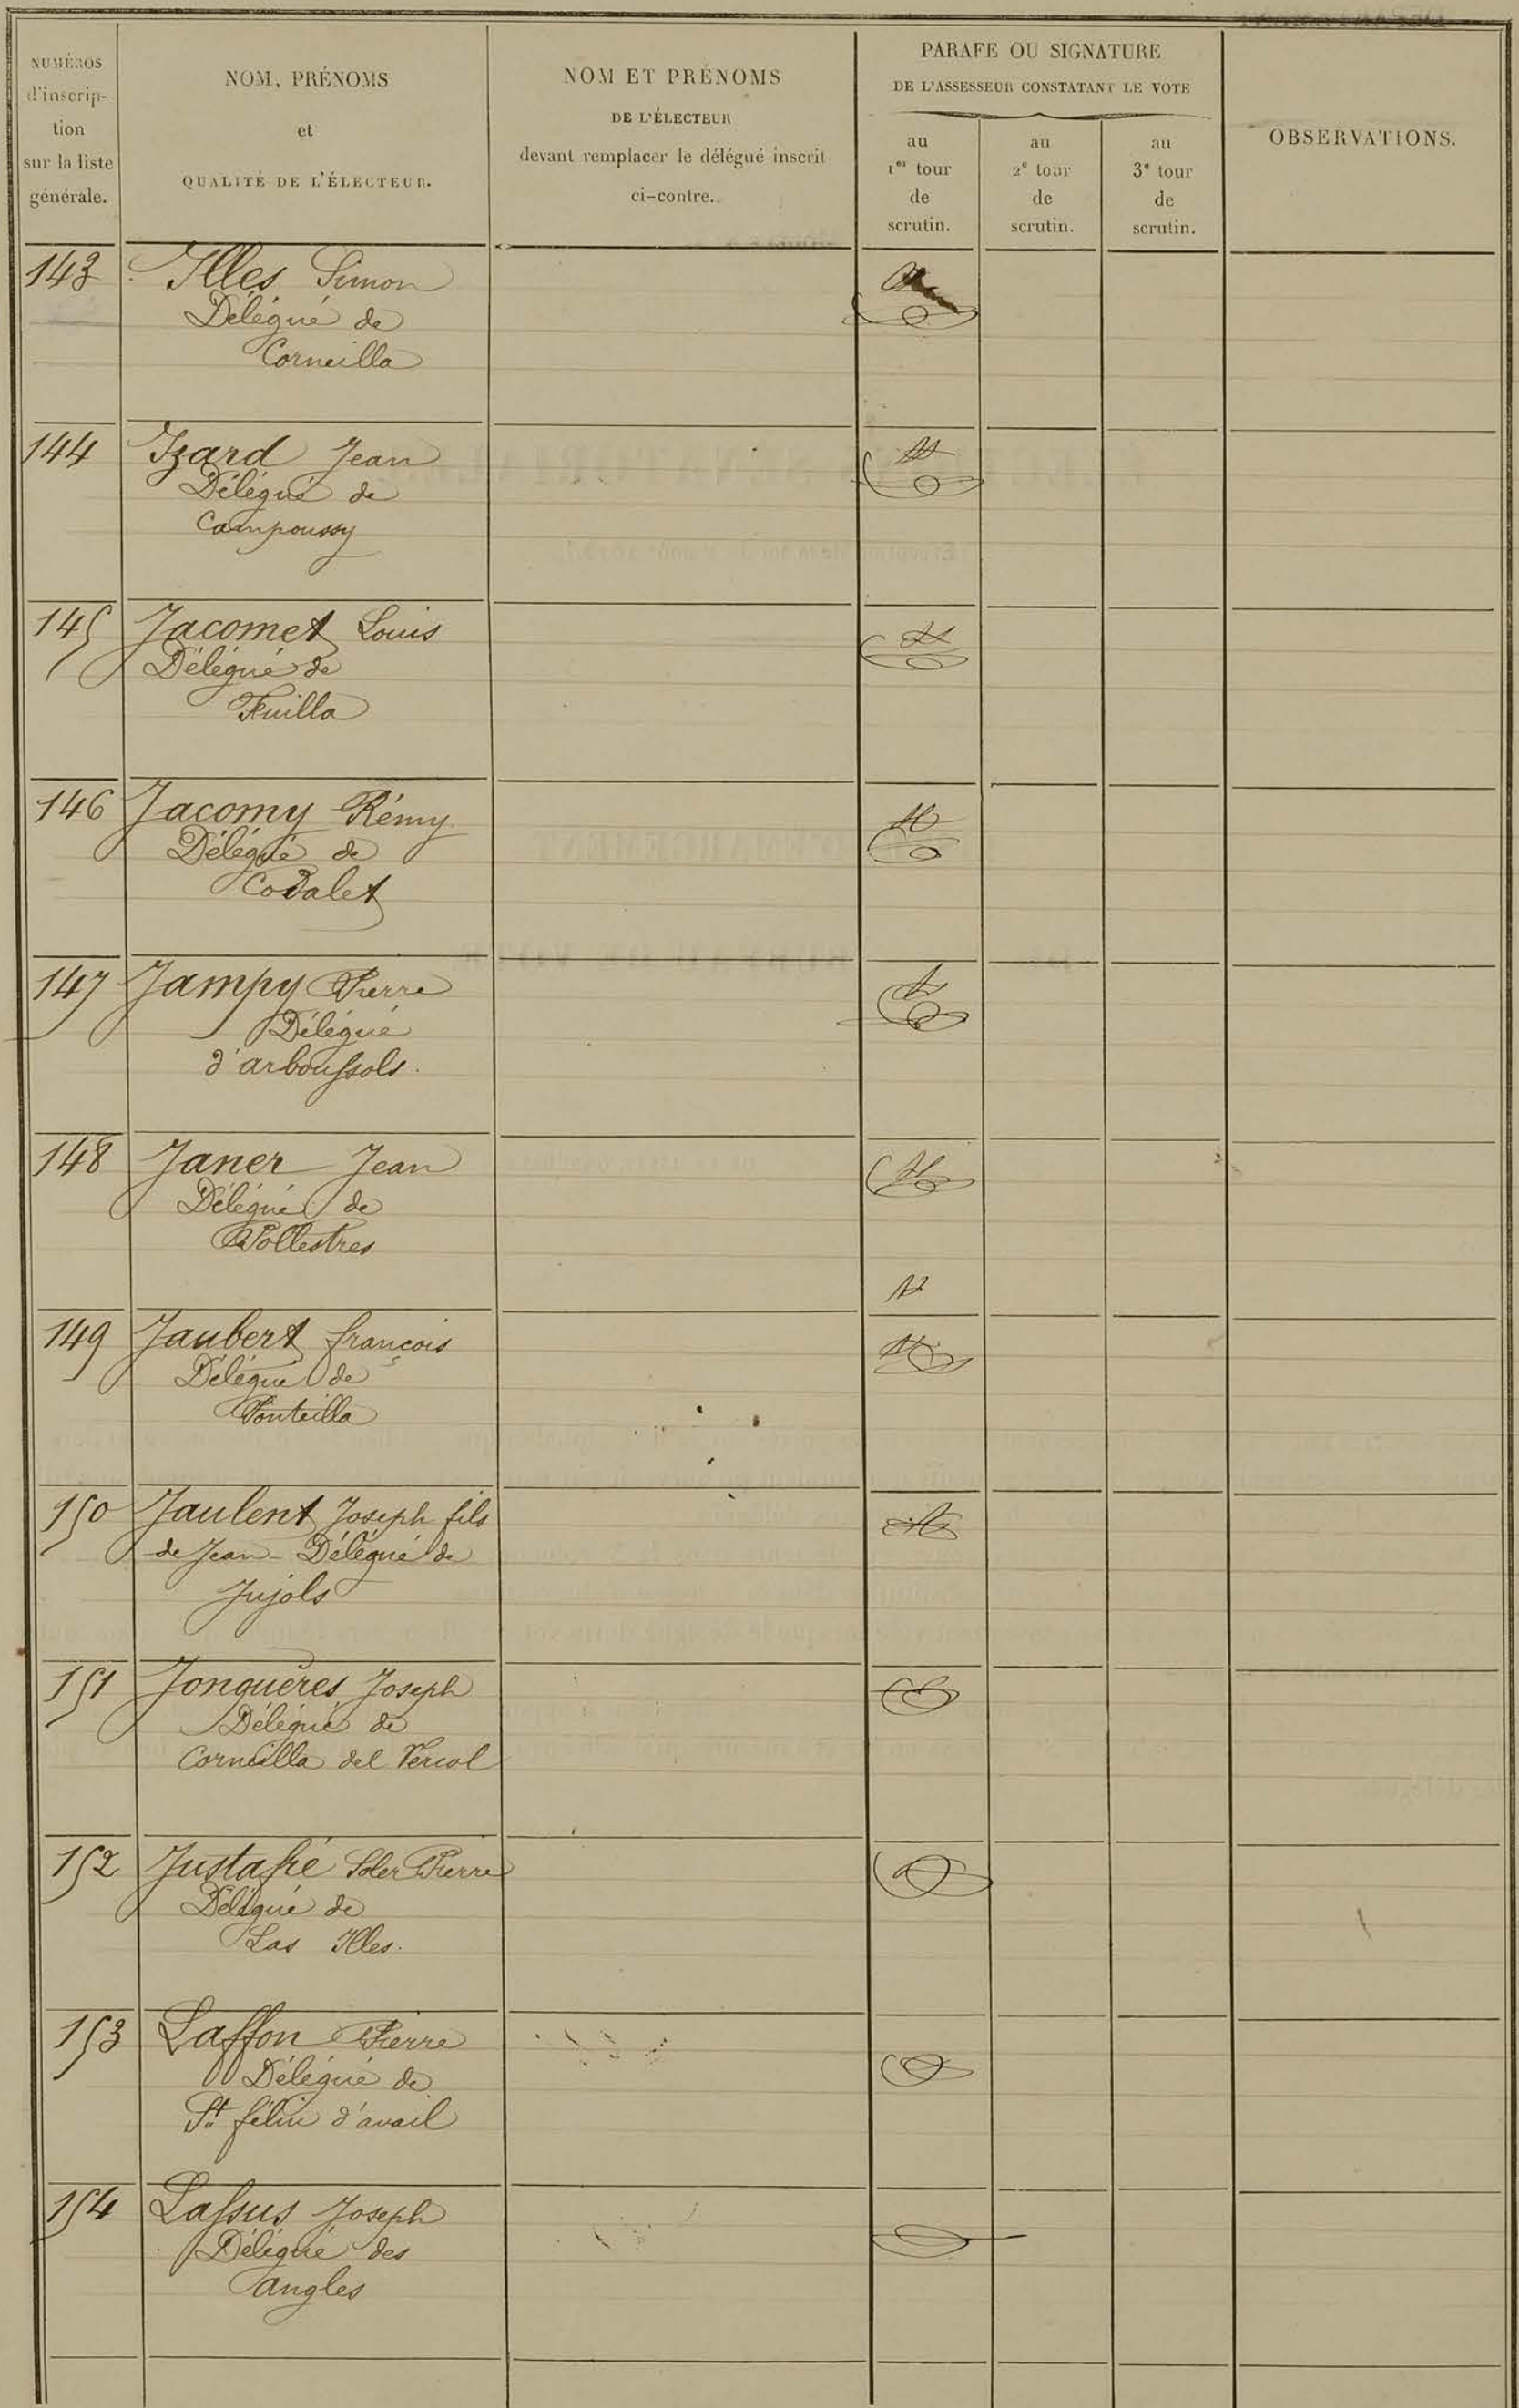 NUMÉROS
d'inscrip-
tion
sur la liste
générale.
NOM, PRÉNOMS
et
QUALITÉ DE L'ÉLECTEUR.
NOM ET PRÉNOMS
DE L'ÉLECTEUR
devant remplacer le délégué inscrit
ci-contre.
PARAFE OU SIGNATURE
DE L'ASSESSEUR CONSTATANT LE VOTE
au
1er tour
de
scrutin.
au
2e tour
de
scrutin.
au
3e tour
de
scrutin.
OBSERVATIONS.
143 Illes Simon
Délégué de
Corneilla
144 Izard Jean
Délégué de
Campoussy
145 Jacomet Louis
Délégué de
Fuilla
146 Jacomy Rémy
Délégué de
Codalet
147 Jampy Pierre
Délégué
d'arboussols.
148 Janer Jean
Délégué de
Pollestres
149 Jaubert françois
Délégué de
Ponteilla
150 Jaulent Joseph fils
de Jean - Délégué de
Jujols
151 Jonquères Joseph
Délégué de
Corneilla del Vercol
152 Justafré Soler Pierre
Délégué de
Las Illes.
153 Laffon Pierre
Délégué de
St féliu d'avail
154 Lassus Joseph
Délégué des
angles